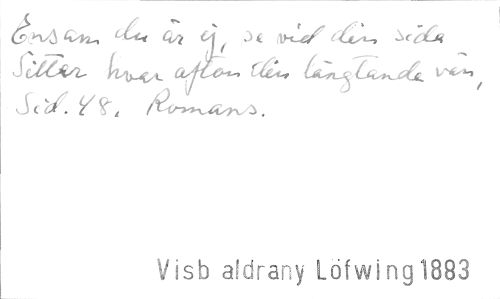 Ensam du är ej, se vid din sida
Sitter hvar afton din längtande vän,
Sid. 48. Romans.
Visb aldrany Löfwing 1883